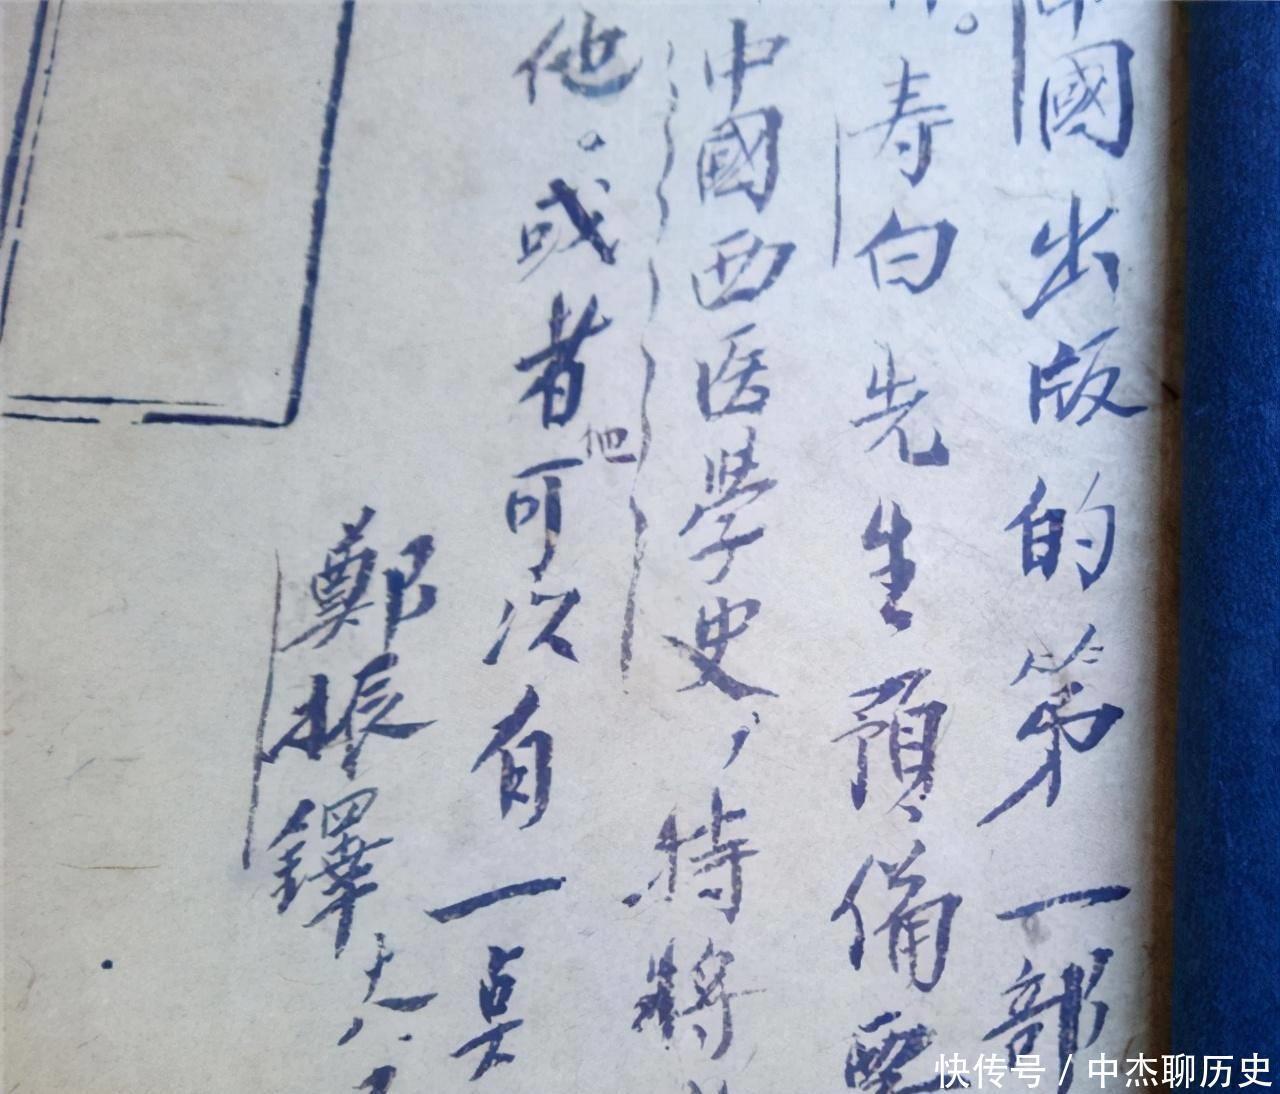 中國出版的第一部
寿白先生預備
中國西医學史，特將
他。或者可以有一点
他
鄭振鐸
快传号 / 中杰聊历史